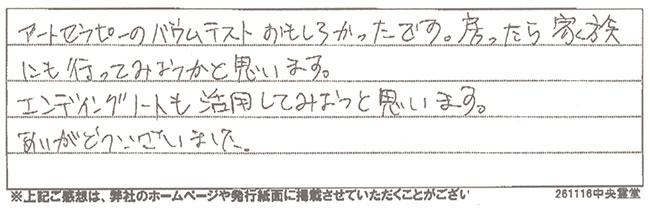 アートセラピーのバウムテストおもしろかったです。戻ったら家族
にも行ってみようかと思います。
エンディングノートも活用してみようと思います。
ありがとうございました。
※上記ご感想は、弊社のホームページや発行紙面に掲載させていただくことがござい
261116中央霊堂